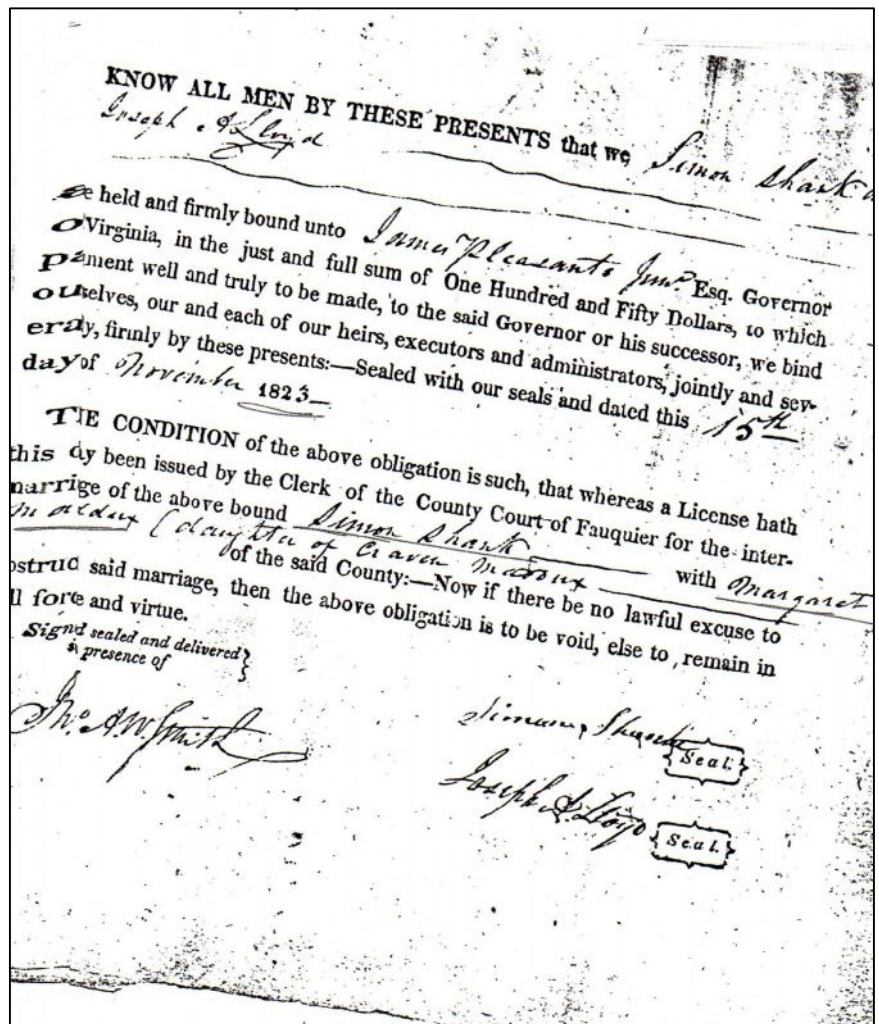 KNOW ALL MEN BY THESE PRESENTS that we Simon Shank
Joseph A Lloyd
e held and firmly bound unto James Pleasants Junr Esq. Governor
o Virginia, in the just and full sum of One Hundred and Fifty Dollars, to which
pament well and truly to be made, to the said Governor or his successor, we bind
ouselves, our and each of our heirs, executors and administrators, jointly and sev-
eraly, firmly by these presents:—Sealed with our seals and dated this 15th
day of November 1823—
TIE CONDITION of the above obligation is such, that whereas a License hath
this dy been issued by the Clerk of the County Court of Fauquier for the inter-
narrige of the above bound Simon Shank with Margaret
Maddux (daughter of Craven Maddux
of the said County:—Now if there be no lawful excuse to
ostruc said marriage, then the above obligation is to be void, else to remain in
ll force and virtue.
Signd sealed and delivered
presence of
Jno A W Smith
Simon Shank
Seal.
Joseph A. Lloyd
Seal.